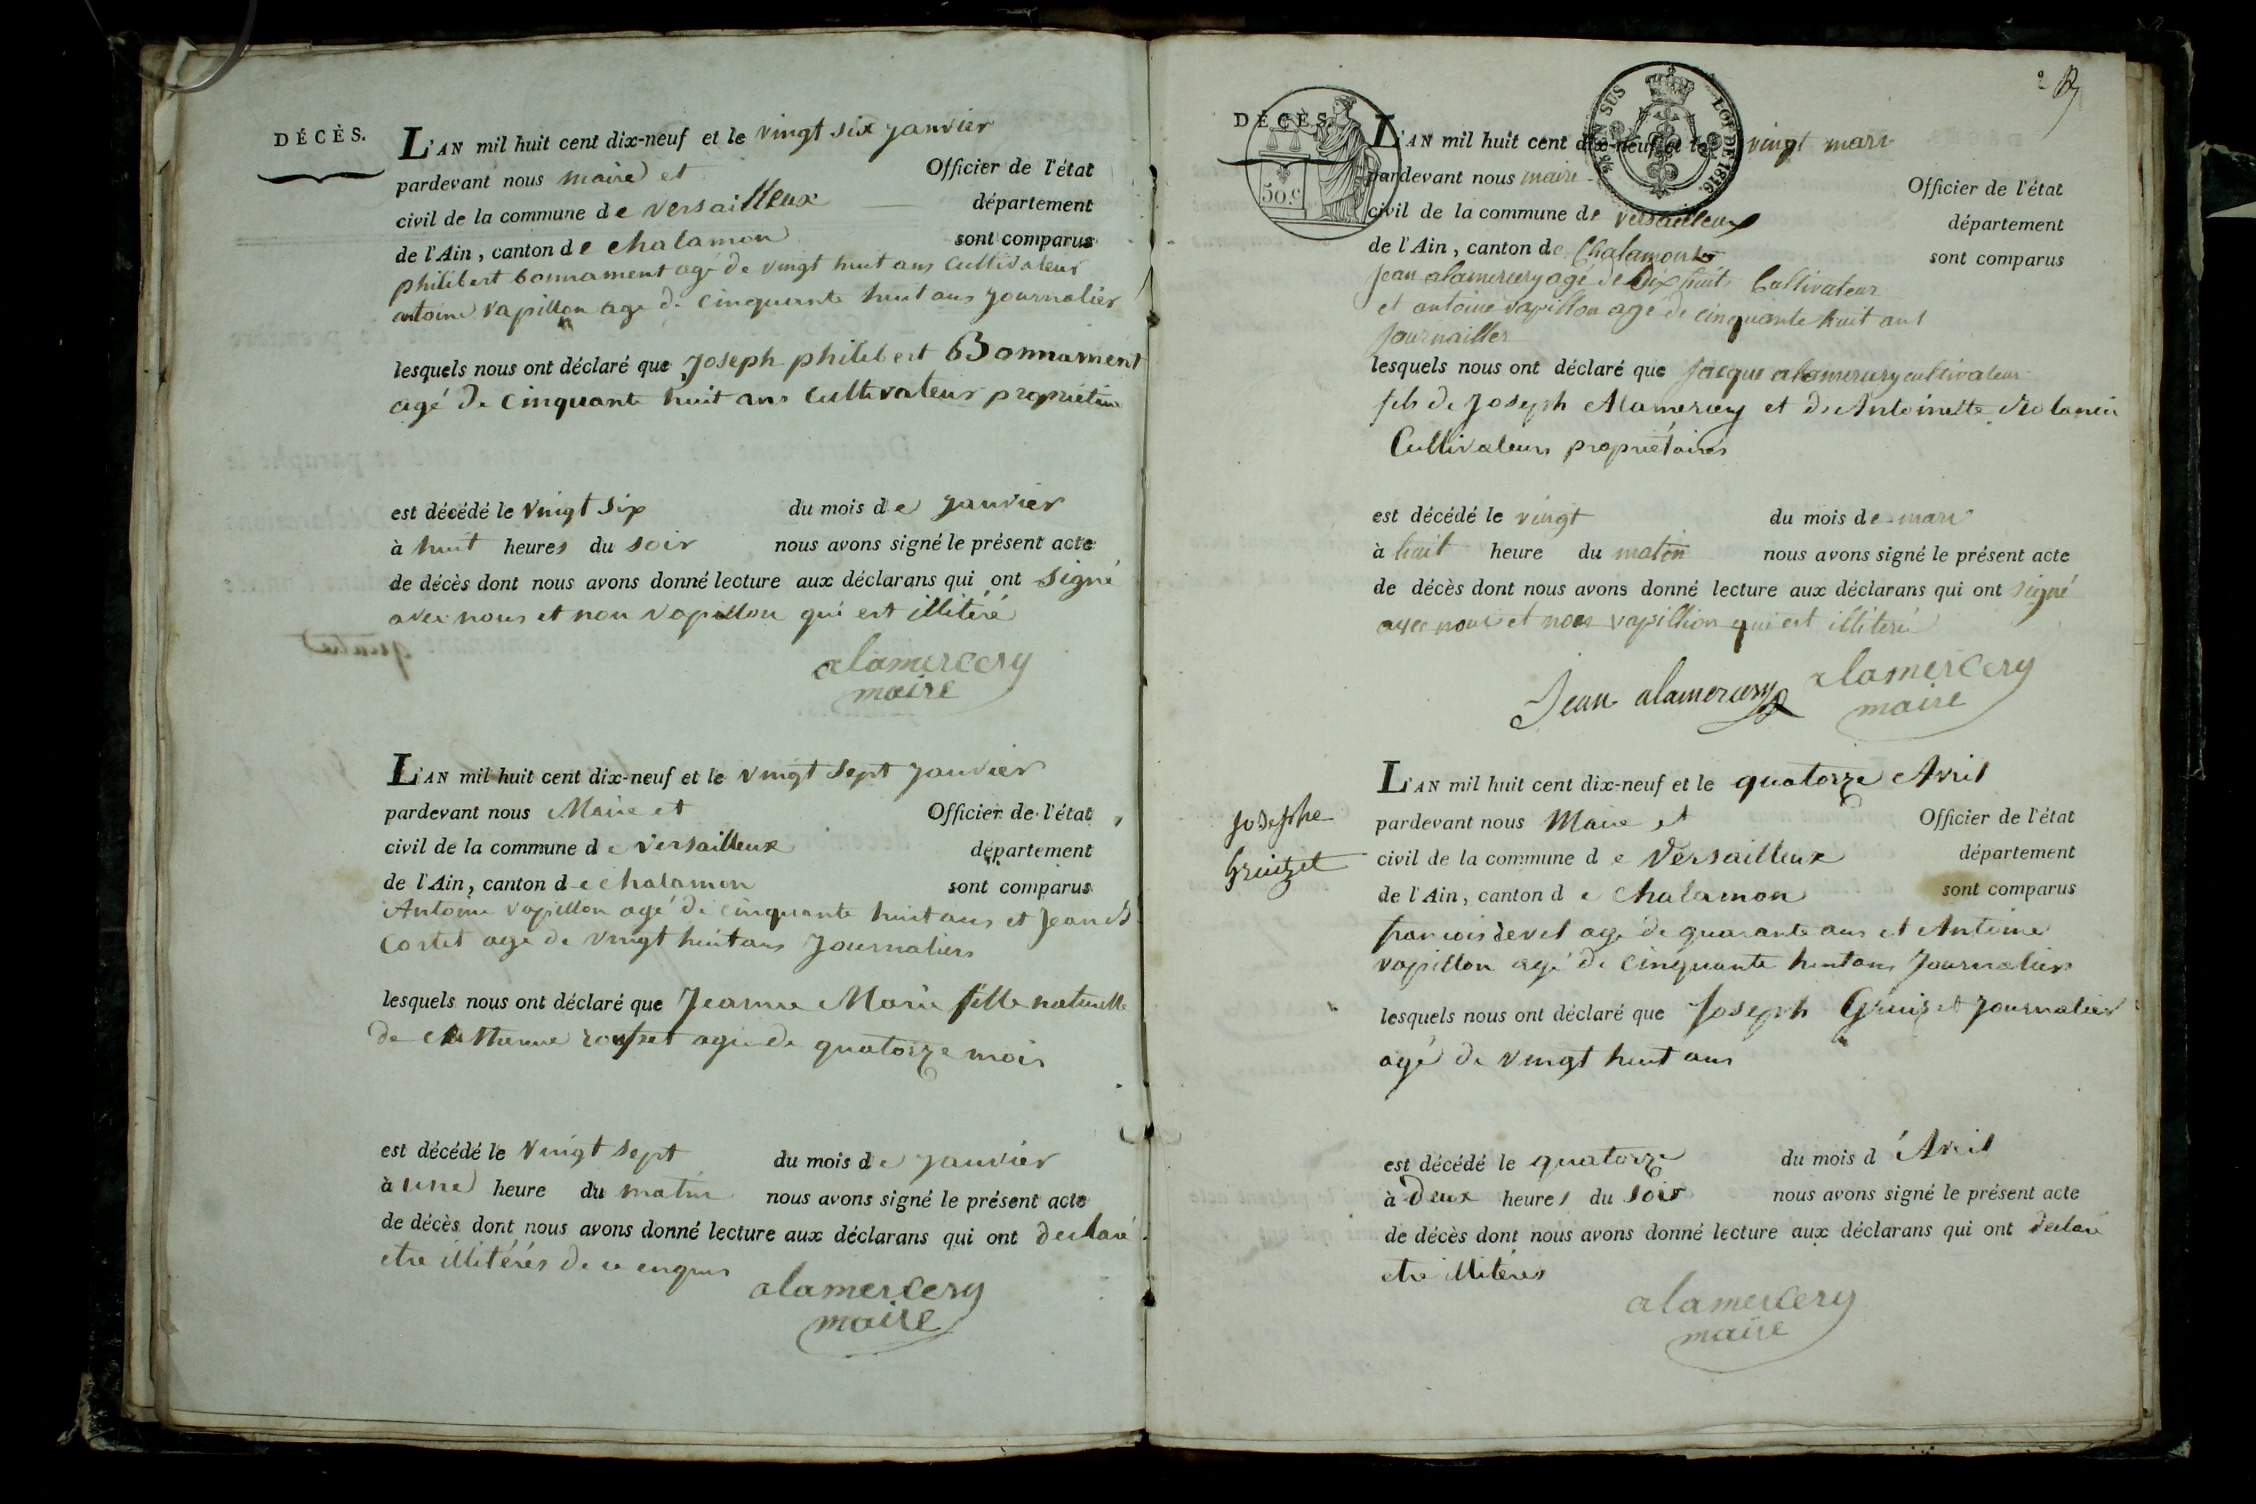 DÉCÈS.
L'AN mil huit cent dix-neuf et le vingt six janvier
pardevant nous maire et Officier de l'état
civil de la commune de versailleux département
de l'Ain, canton de chalamon sont comparus
philibert bonnament agé de vingt huit ans cultivateur
antoine vapillon agé de cinquante huit ans journalier
lesquels nous ont déclaré que Joseph philibert Bonnament
agé de cinquante huit ans cultivateur propriétaire
est décédé le vingt six du mois de janvier
à huit heures du soir nous avons signé le présent acte
de décès dont nous avons donné lecture aux déclarans qui ont signé
avec nous et non vapillon qui est illitéré
alamercery
maire
L'AN mil huit cent dix-neuf et le vingt sept janvier
pardevant nous Maire et Officier de l'état
civil de la commune de versailleux département
de l'Ain, canton de chalamon sont comparus
Antoine vapillon agé de cinquante huit ans et Jean
Cortet agé de vingt huit ans journaliers
lesquels nous ont déclaré que Jeanne Marie fille naturelle
de agée de quatorze mois
est décédé le vingt sept du mois de janvier
à une heure du matin nous avons signé le présent acte
de décès dont nous avons donné lecture aux déclarans qui ont déclaré
etre illitérés de ce enquis
alamercery
maire
2
DÉCÈS.
50.c
EN SUS
LOI DE 1816.
L'AN mil huit cent dix-neuf et le vingt mars
pardevant nous maire Officier de l'état
civil de la commune de versailleux département
de l'Ain, canton de Chalamont sont comparus
jean alamercery agé de dix huit Cultivateur
et antoine vapillon agé de cinquante huit ans
journaillier
lesquels nous ont déclaré que jacque alamercery cultivateur
fils de Joseph Alamercery et de Antoinette
Cultivateurs propriétaires
est décédé le vingt du mois de mars
à huit heure du matin nous avons signé le présent acte
de décès dont nous avons donné lecture aux déclarans qui ont signé
avec nous et non vapillion qui est illiteré
Jean alamercery alamercery
maire
Josephe
Gruizet
L'AN mil huit cent dix-neuf et le quatorze Avril
pardevant nous Maire et Officier de l'état
civil de la commune de Versailleux département
de l'Ain, canton de Chalamon sont comparus
francois devel agé de quarante ans et Antoine
vapillon agé de cinquante huit ans journaliers
lesquels nous ont déclaré que Joseph Gruizet journalier
agé de vingt huit ans
est décédé le quatorze du mois d'Avril
à Deux heures du soir nous avons signé le présent acte
de décès dont nous avons donné lecture aux déclarans qui ont déclaré
etre illitérés
alamercery
maire